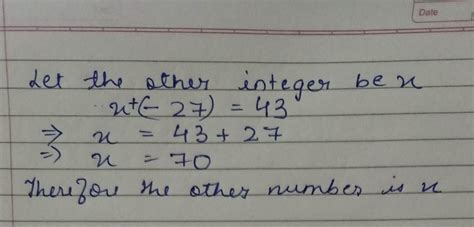 Date
Let the other integer be x
x+(-27) = 43
⇒ x = 43 + 27
⇒ x = 70
Therefore the other number is x